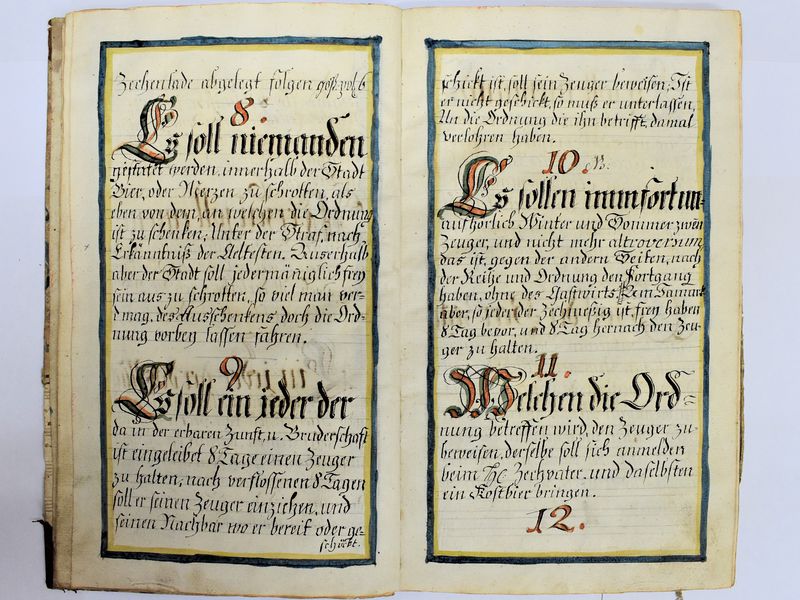 Zechenlade abgelegt folgen
8.
Es soll niemanden
gestatet werden, innerhalb der Stadt
Bier, oder Merzen zu schrotten, als
eben von dem, an welchen die Ordnung
ist zu schenken; Unter der Straf, nach
Erkäntniß der Aeltesten. Auserhalb
aber der Stadt soll jedermäniglich frey
sein aus zu schrotten, so viel man ver=
d mag, des Ausschenkens doch die Ord=
nung vorbey lassen fahren.
9.
Es soll ein jeder der
da in der erbaren Zunft, u. Bruderschaft
ist eingeleibet 8 Tage einen Zeuger
zu halten, nach verflossenen 8 Tagen
soll er seinen Zeuger einziehen, und
seinen Nachbar wo er bereit oder ge=
schickt.
schickt ist, soll sein Zeuger beweisen; Ist
er nicht geschickt, so muß er unterlassen,
Un die Ordnung die ihn betrifft, damal
verlohren haben.
10. B.
Es sollen immfort un=
aufhörlich Winter und Sommer zwen
Zeuger, und nicht mehr altroversum
das ist, gegen der andern Seiten, nach
der Reihe und Ordnung den Fortgang
haben, ohne des Gastwirts
aber, so jeder der Zechmeßig ist, frey haben
8 Tag bevor, und 8 Tag hernach den Zeu=
ger zu halten.
11.
Welchen die Ord=
nung betreffen wird, den Zeuger zu
beweisen, derselbe soll sich anmelden
beim Zechvater, und daselbsten
ein Kostbier bringen.
12.